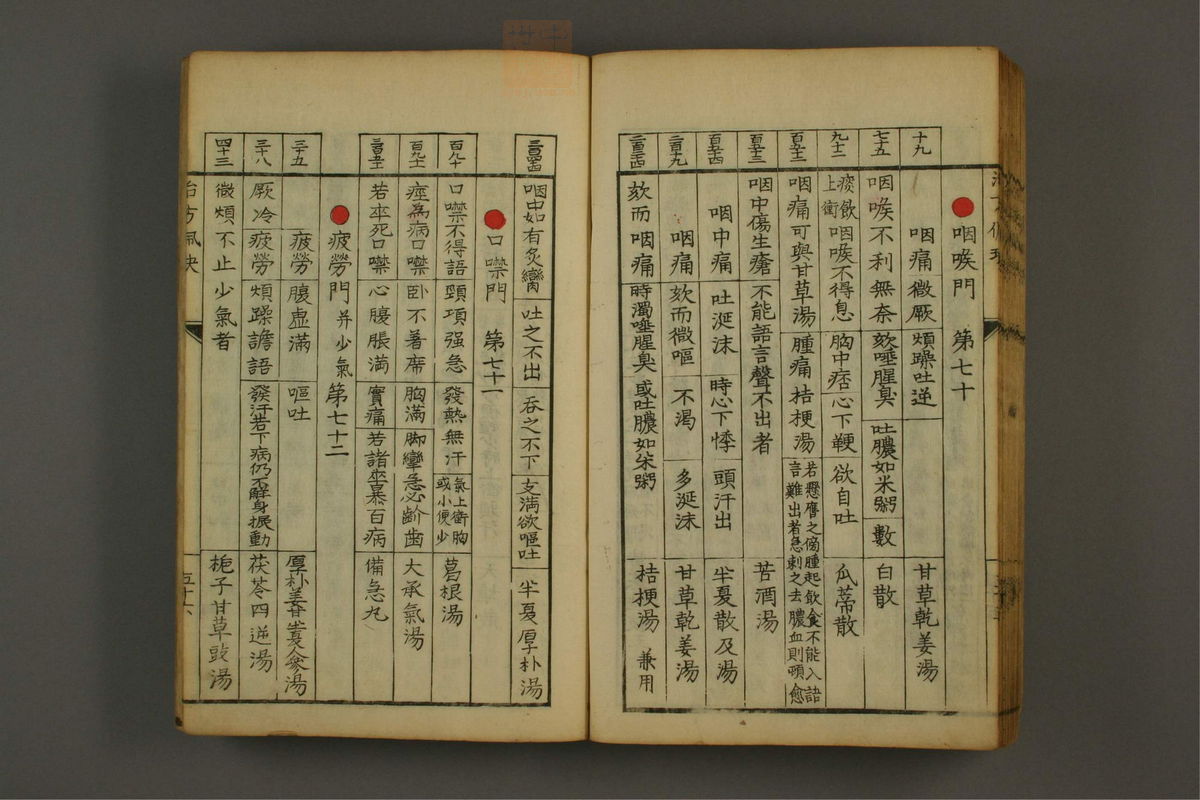 咽喉門 第七十
十九 咽痛微厥 煩躁吐逆 甘草乾姜湯
七十五 咽喉不利無奈 欬唾腥臭 吐膿如米粥 數 白散
九十二 痰飲上衝 咽喉不得息 胸中痞 心下鞕 欲自吐 瓜蒂散
咽痛可與甘草湯 腫痛 桔梗湯 若懸廱之傍腫起飲食不能入詰言難出者急刺之去膿血則頓愈
咽中傷生瘡 不能語言聲不出者 苦酒湯
咽中痛 吐涎沫 時心下悸 頭汗出 半夏散及湯
咽痛 欬而微嘔 不渴 多涎沫 甘草乾姜湯
欬而咽痛 時濁唾腥臭 或吐膿如米粥 桔梗湯 兼用
咽中如有炙臠 吐之不出 吞之不下 支満欲嘔吐 半夏厚朴湯
口噤門 第七十一
百八十 口噤不得語 頸項强急 發熱無汗 氣上衝胸或小便少 葛根湯
痙為病口噤 臥不著席 胸滿 脚攣急必齘齒 大承氣湯
若卒死口噤 心腹脹滿 實痛 若諸卒暴百病 備急丸
疲勞門 并少氣 第七十二
三十五 疲勞 腹虚滿 嘔吐 厚朴姜甘半夏人参湯
三十八 厥冷疲勞 煩躁譫語 發汗若下病仍不解身振動 茯苓四逆湯
四十三 微煩不止少氣者 梔子甘草豉湯
五十六